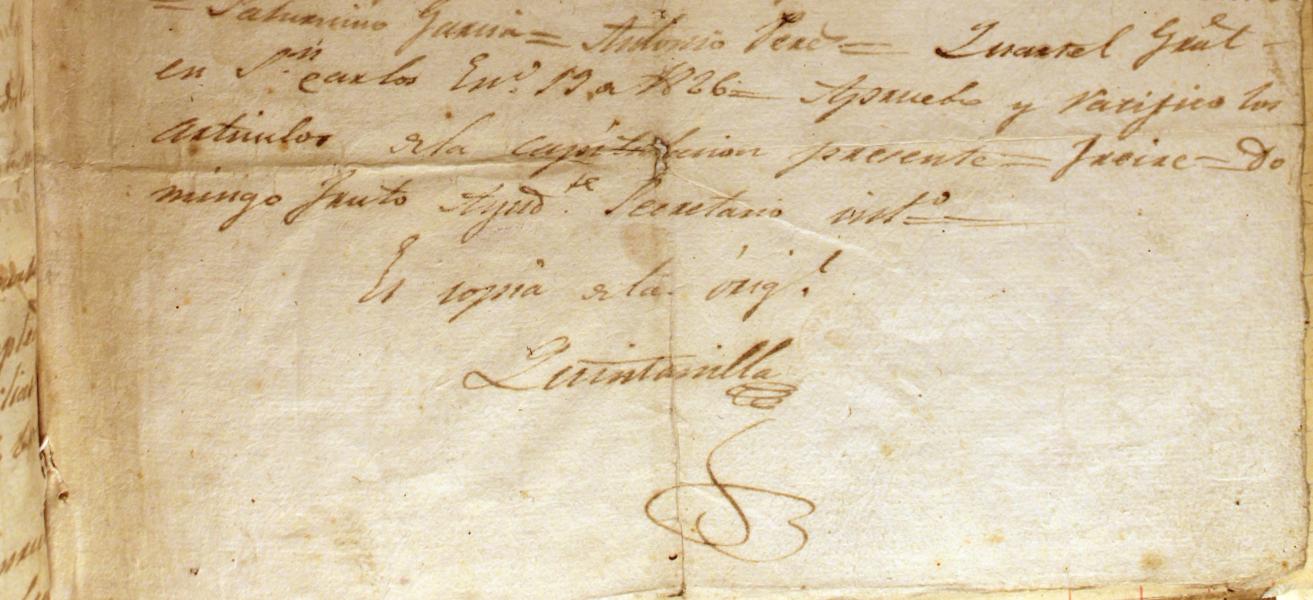 = Saturnino Garcia = Antonio Peres = Quartel Gral
en Sn Carlos Eno 19 a 1826 = Apruebo y ratifico los
articulos de la capitulacion presente = Freire = Do
mingo Fruto Ayudte Secretario into =
Es copia de la origl
Quintanilla